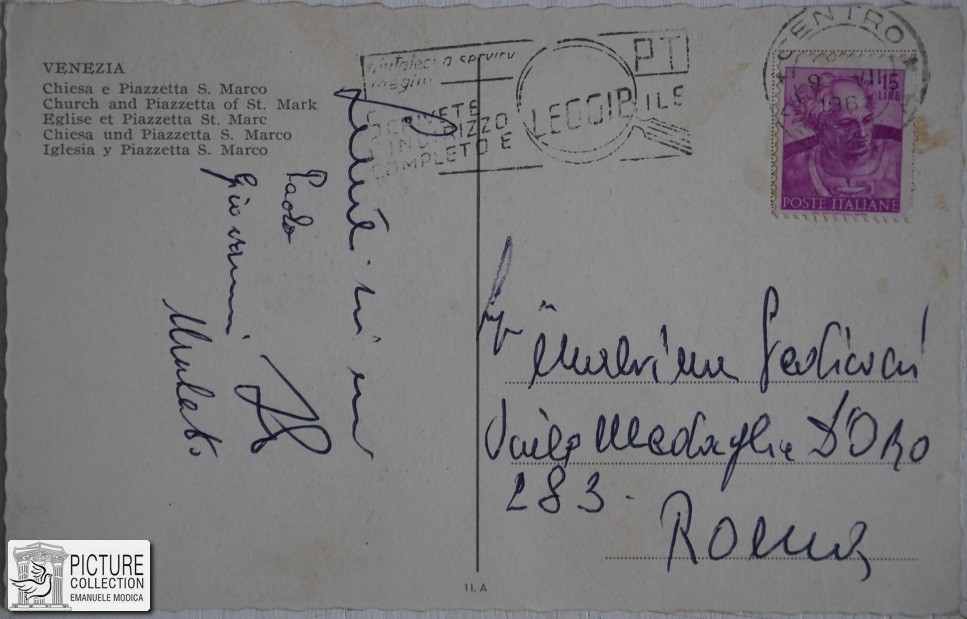 VENEZIA
Chiesa e Piazzetta S. Marco
Church and Piazzetta of St. Mark
Eglise et Piazzetta St. Marc
Chiesa und Piazzetta S. Marco
Iglesia y Piazzetta S. Marco
a servirvi
meglio
PT
SCRIVETE
L'INDIRIZZO
COMPLETO E
LEGGIBILE
CENTRO
9 VII
196
15
LIRE
POSTE ITALIANE
Paola
Giovanni
Viale Medaglie D'Oro
283.
Roma
11. A
PICTURE
COLLECTION
EMANUELE MODICA